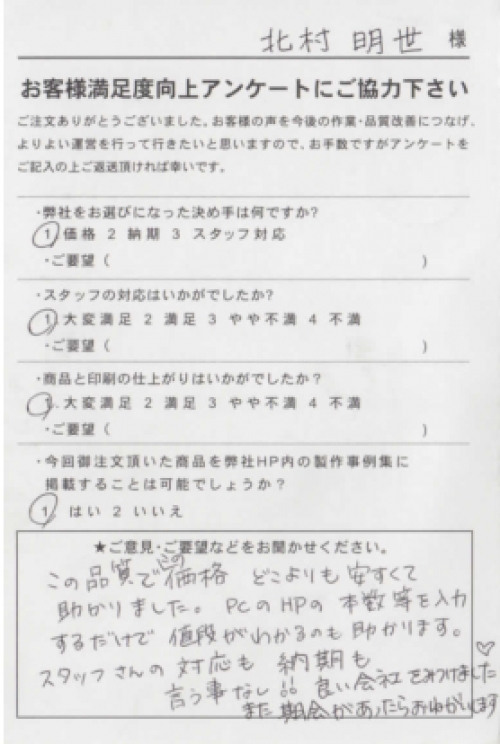 北村 明世 様
お客様満足度向上アンケートにご協力下さい
ご注文ありがとうございました。お客様の声を今後の作業・品質改善につなげ、
よりよい運営を行って行きたいと思いますので、お手数ですがアンケートを
ご記入の上ご返送頂ければ幸いです。
・弊社をお選びになった決め手は何ですか?
1 価格 2 納期 3 スタッフ対応
・ご要望 ( )
・スタッフの対応はいかがでしたか?
1.大変満足 2 満足 3 やや不満 4 不満
・ご要望 ( )
・商品と印刷の仕上がりはいかがでしたか?
1.大変満足 2 満足 3 やや不満 4 不満
・ご要望 ( )
・今回御注文頂いた商品を弊社HP内の製作事例集に
掲載することは可能でしょうか?
1. はい 2 いいえ
★ご意見・ご要望などをお聞かせください。
この品質でこの価格 どこよりも安すくて
助かりました。PCのHPの 本数等を入力
するだけで 値段がわかるのも助かります。
スタッフさんの 対応も 納期も
言う事なし!! 良い会社をみつけました♡
また期会があったらおねがいします